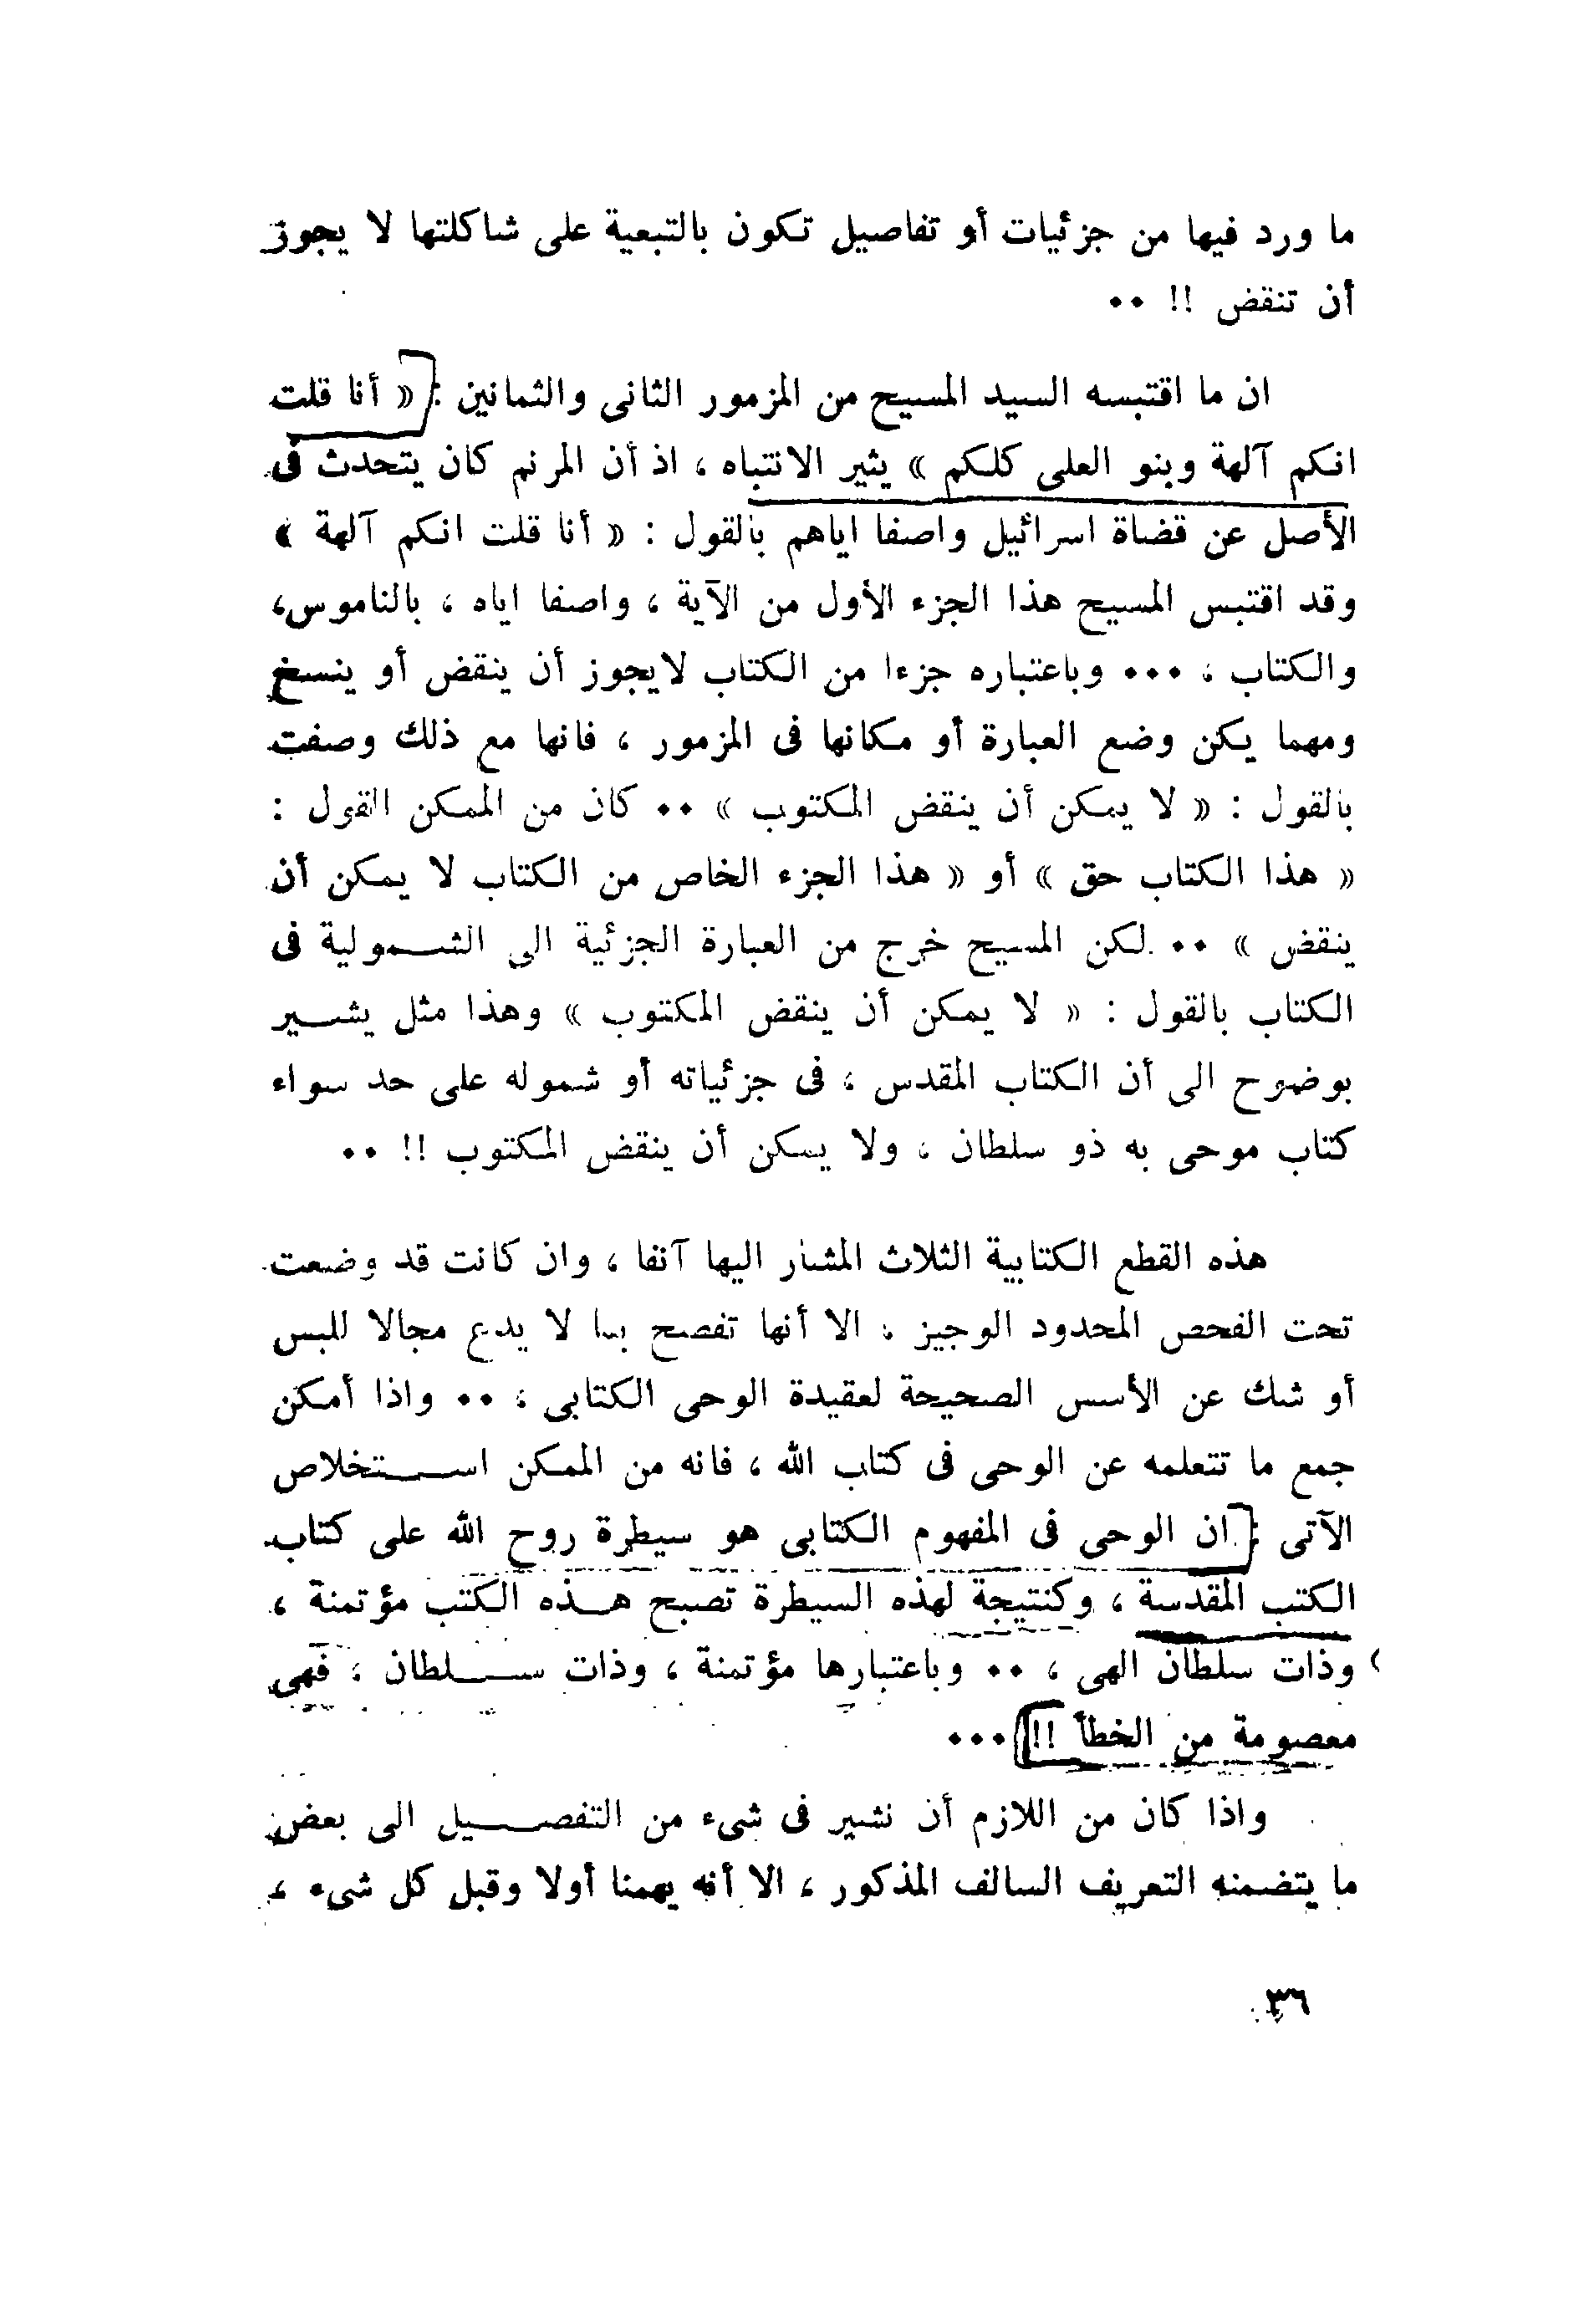 ما ورد فيها من جزئيات أو تفاصيل تكون بالتبعية على شاكلتها لا يجوز
أن تنقض !! ••
ان ما اقتبسه السيد المسيح من المزمور الثانى والثمانين : « أنا قلت
انكم آلهة وبنو العلى كلكم » يثير الانتباه ، اذ أن المرنم كان يتحدث فى
الأصل عن قضاة اسرائيل واصفا اياهم بالقول : « أنا قلت انكم آلهة »
وقد اقتبس المسيح هذا الجزء الأول من الآية ، واصفا اياه ، بالناموس،
والكتاب ، ••• وباعتباره جزءا من الكتاب لايجوز أن ينقض أو ينسخ
ومهما يكن وضع العبارة أو مكانها فى المزمور ، فانها مع ذلك وصفت
بالقول : « لا يمكن أن ينقض المكتوب » •• كان من الممكن القول :
« هذا الكتاب حق » أو « هذا الجزء الخاص من الكتاب لا يمكن أن
ينقض » •• لكن المسيح خرج من العبارة الجزئية الى الشمولية فى
الكتاب بالقول : « لا يمكن أن ينقض المكتوب » وهذا مثل يشير
بوضوح الى أن الكتاب المقدس ، فى جزئياته أو شموله على حد سواء
كتاب موحى به ذو سلطان ، ولا يمكن أن ينقض المكتوب !! ••
هذه القطع الكتابية الثلاث المشار اليها آنفا ، وان كانت قد وضعت
تحت الفحص المحدود الوجيز ، الا أنها تفصح بما لا يدع مجالا للبس
أو شك عن الأسس الصحيحة لعقيدة الوحى الكتابى ، •• واذا أمكن
جمع ما تتعلمه عن الوحى فى كتاب الله ، فانه من الممكن استخلاص
الآتى : ان الوحى فى المفهوم الكتابى هو سيطرة روح الله على كتاب
الكتب المقدسة ، وكنتيجة لهذه السيطرة تصبح هذه الكتب مؤتمنة ،
وذات سلطان الهى ، •• وباعتبارها مؤتمنة ، وذات سلطان ، فهى
معصومة من الخطأ !! •••
واذا كان من اللازم أن نشير فى شىء من التفصيل الى بعض
ما يتضمنه التعريف السالف المذكور ، الا أنه يهمنا أولا وقبل كل شىء ،
٣٦